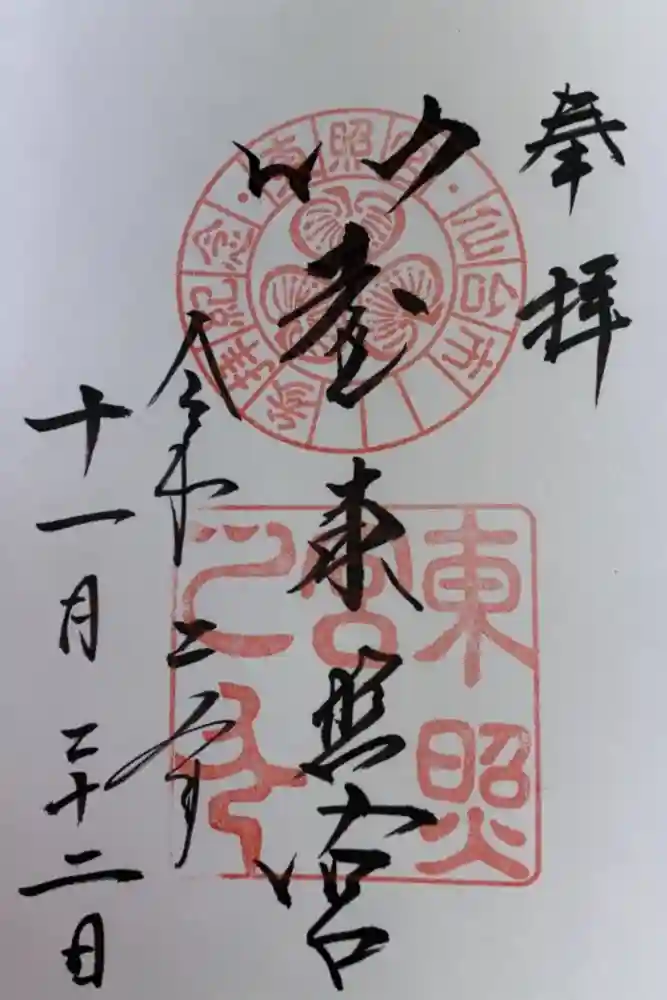 奉拝
仙臺東照宮
令和二年
十一月二十二日
東照宮・仙台市
敬拝記念
東照
宮
之印